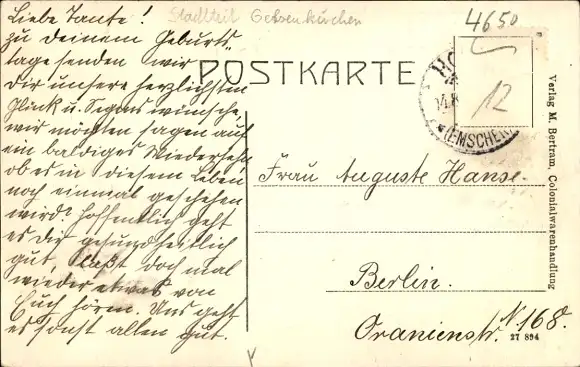 Liebe Tante!
zu Deinem Geburts-
tage senden wir
Dir unsere herzlichsten
Glück u. Segenswünsche,
wir möchten sagen auf
ein baldiges Wiedersehn
ob es in diesem Leben
noch einmal geschehen
wird? Hoffentlich geht
es Dir gesundheitlich
gut, laßt doch mal
wieder etwas von
Euch hören. Uns geht
es sonst allen gut.
Stadtteil Gelsenkirchen
4650
POSTKARTE
HO
14.
12
(EMSCHER)
Frau Auguste Hanse.
Berlin.
Oranienstr. N. 168.
27 894
Verlag M. Bertram, Colonialwarenhandlung